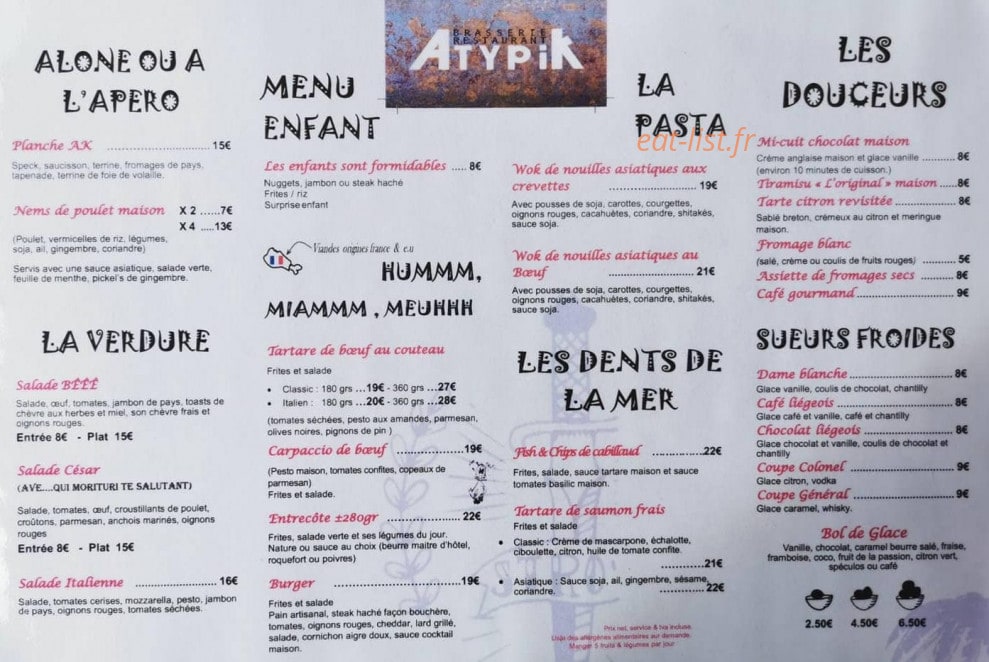 BRASSERIE
RESTAURANT
ATYPiK
eat-list.fr
ALONE OU A
L'APERO
Planche AK .......................... 15€
Speck, saucisson, terrine, fromages de pays,
tapenade, terrine de foie de volaille.
Nems de poulet maison X 2 ......7€
X 4 ....13€
(Poulet, vermicelles de riz, légumes,
soja, ail, gingembre, coriandre)
Servis avec une sauce asiatique, salade verte,
feuille de menthe, pickel's de gingembre.
LA VERDURE
Salade BÊÊÊ
Salade, œuf, tomates, jambon de pays, toasts de
chèvre aux herbes et miel, son chèvre frais et
oignons rouges.
Entrée 8€ - Plat 15€
Salade César
(AVE....QUI MORITURI TE SALUTANT)
Salade, tomates, œuf, croustillants de poulet,
croûtons, parmesan, anchois marinés, oignons
rouges
Entrée 8€ - Plat 15€
Salade Italienne .................... 16€
Salade, tomates cerises, mozzarella, pesto, jambon
de pays, oignons rouges, tomates séchées.
MENU
ENFANT
Les enfants sont formidables ..... 8€
Nuggets, jambon ou steak haché
Frites / riz
Surprise enfant
Viandes origines france & e.u
HUMMM,
MIAMMM , MEUHHH
Tartare de bœuf au couteau
Frites et salade
• Classic : 180 grs ...19€ - 360 grs ...27€
• Italien : 180 grs ...20€ - 360 grs ...28€
(tomates séchées, pesto aux amandes, parmesan,
olives noires, pignons de pin )
Carpaccio de bœuf ....................19€
(Pesto maison, tomates confites, copeaux de
parmesan)
Frites et salade.
Entrecôte ±280gr ...................... 22€
Frites, salade verte et ses légumes du jour.
Nature ou sauce au choix (beurre maitre d'hôtel,
roquefort ou poivres)
Burger ....................................19€
Frites et salade
Pain artisanal, steak haché façon bouchère,
tomates, oignons rouges, cheddar, lard grillé,
salade, cornichon aigre doux, sauce cocktail
maison.
LA
PASTA
Wok de nouilles asiatiques aux
crevettes .......................... 19€
Avec pousses de soja, carottes, courgettes,
oignons rouges, cacahuètes, coriandre, shitakés,
sauce soja.
Wok de nouilles asiatiques au
Bœuf ...................... 21€
Avec pousses de soja, carottes, courgettes,
oignons rouges, cacahuètes, coriandre, shitakés,
sauce soja.
LES DENTS DE
LA MER
Fish & Chips de cabillaud ....................22€
Frites, salade, sauce tartare maison et sauce
tomates basilic maison.
Tartare de saumon frais
Frites et salade
• Classic : Crème de mascarpone, échalotte,
ciboulette, citron, huile de tomate confite.
...........21€
• Asiatique : Sauce soja, ail, gingembre, sésame,
coriandre. ............22€
Prix net, service & tva incluse.
Liste des allergènes alimentaires sur demande.
Manger 5 fruits & légumes par jour
LES
DOUCEURS
Mi-cuit chocolat maison
Crème anglaise maison et glace vanille .......... 8€
(environ 10 minutes de cuisson.)
Tiramisu « L'original » maison.....8€
Tarte citron revisitée .................. 8€
Sablé breton, crémeux au citron et meringue
maison.
Fromage blanc
(salé, crème ou coulis de fruits rouges) .......... 5€
Assiette de fromages secs ......... 8€
Café gourmand........................ 9€
SUEURS FROIDES
Dame blanche ........................... 8€
Glace vanille, coulis de chocolat, chantilly
Café liégeois ............................. 8€
Glace café et vanille, café et chantilly
Chocolat liégeois ........................ 8€
Glace chocolat et vanille, coulis de chocolat et
chantilly
Coupe Colonel ........................... 9€
Glace citron, vodka
Coupe Général .......................... 9€
Glace caramel, whisky.
Bol de Glace
Vanille, chocolat, caramel beurre salé, fraise,
framboise, coco, fruit de la passion, citron vert,
spéculos ou café
2.50€ 4.50€ 6.50€